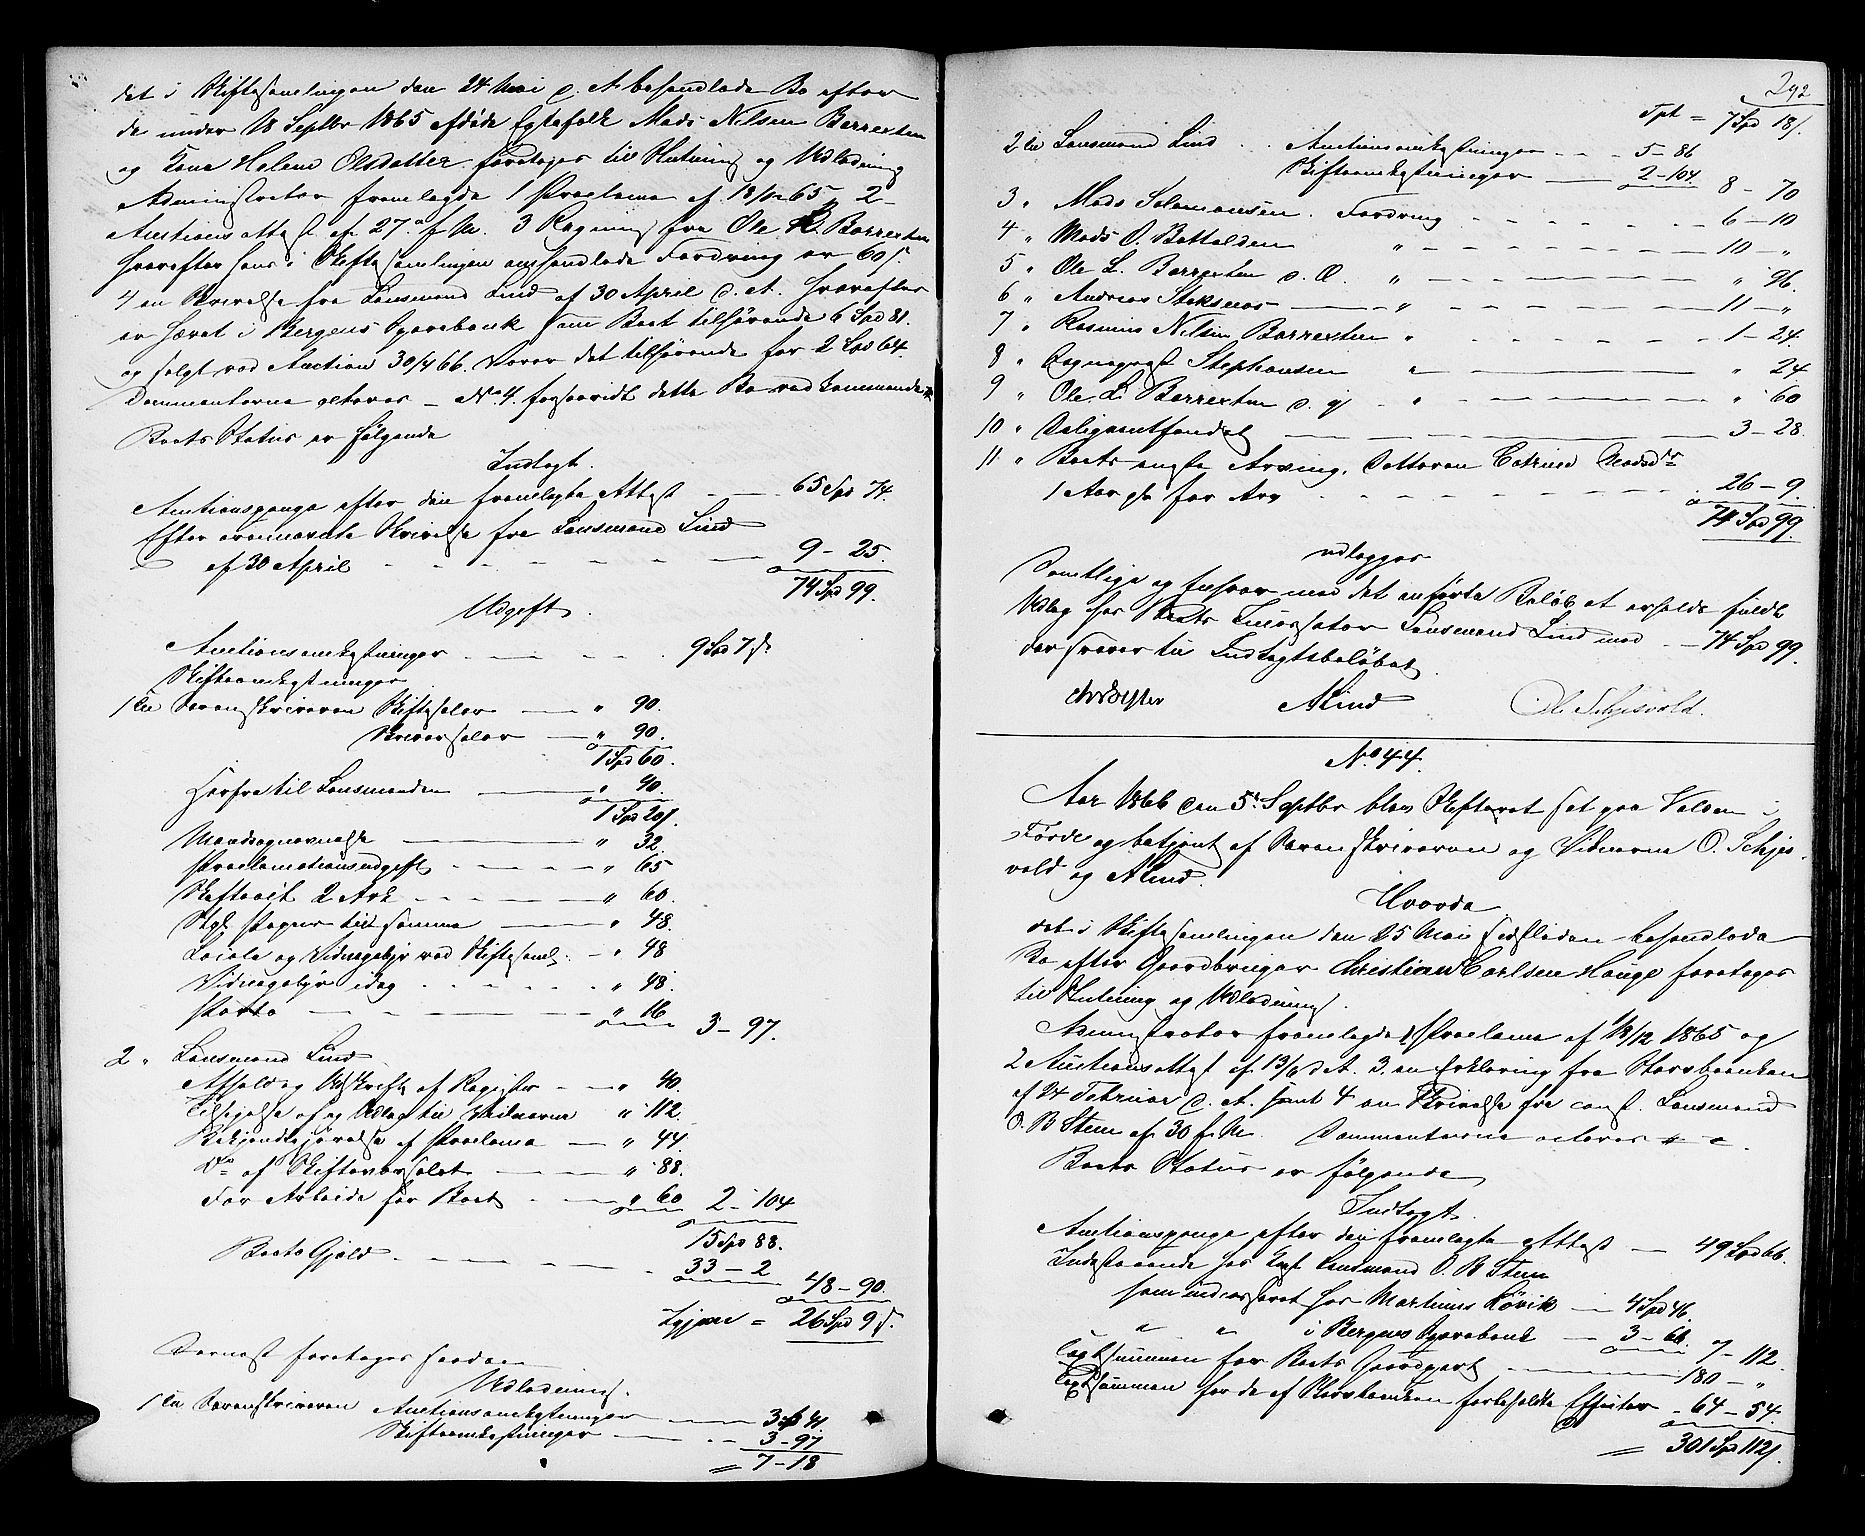 det i Skiftesamlingen den 24 Mai d. A. behandlede Bo efter
de under 18 Septbr 1865 afdøde Egtefolk Mads Nilsen Barrexten
og Helene Olsdatter foretoges til Slutning og Udlodning
Administrator fremlagde 1 Proclama af 18/12 65, 2
Auctions attest af 27de f. M. 3 Regning fra Ole L. Barrexten
hvorefter hans i Skiftesamlingen omhandlede Fordring er 60 s
4 en Skrivelse fra Lensmand Lind af 30 April d. A. hvorefter
er hævet i Bergens Sparebank som Boet tilhørende 6 Spd 81.
og solgt ved Auction 30/4 66 Varer det tilhørende for 2 Spd 64.
Documenterne acteres – No 4. forsaavidt dette Bo vedkommende
Boets Status er følgende
Indtægt.
Auctionspenge efter den fremlagte Attest — 65 Spd 74.
Efter ovennævnte Skrivelse fra Lensmand Lind
af 30 April - - - - 9 – 25.
74 Spd 99.
Udgift.
Auctionsomkostninger - - - 9 Spd 7 s.
Skifteomkostninger
1 til Sorenskriveren Skiftesalær — " 90.
Skriversalær — " 90.
1 Spd 60.
Herfra til Lensmanden — " 40.
1 Spd 20 s.
Mandsopnævnelse — " 32
Proclamationsudgift - - - " 65
Skifteakt 2 Ark - - - " 60.
Stpl. Papir til samme — " 48.
Locale og Vidnegebyr ved Skiftesaml. - " 48
Vidnegebyr idag - - - " 48.
Porto — " 16
3 – 97.
2 " Lensmand Lind
Afhold og Udskrift af Register — " 40.
Tilsigelse af og Udlæg til Vidnerne " 112.
Bekjendtgjørelse af Proclama — " 44.
Do af Skiftevarselet — " 88.
For Arbeide for Boet - - " 60 2 – 104
15 Spd 88.
Boets Gjæld - - - 33 – 2
48 – 90.
Igjen = 26 Spd 9 s.
Dernæst foretoges saadan
Udlodning.
1 til Sorenskriveren Auctionsomkostninger — 3 Spd 41.
Skifteomkostninger — 3 – 97
= 7 – 18
292
Tpt = 7 Spd 18 s.
2 til Lensmand Lind . . Auctionsomkostninger - - 5 – 86
Skifteomkostninger — 2 – 104. 8 – 70
3 " Mads Salamonsen. Fordring - - - 6 – 10
4 " Mads O. Battalden " - - - 10 – "
5 " Ole L. Barrexten d. Æ. " - - - " 96.
6 " Andreas Steksnæs — " - - - 11 – "
7 " Rasmus Nilsen Barrexten " - - - 1 – 24.
8 " Sogneprest Stephansen " — " 24
9 " Ole L. Barrexten d. y. - " - - " 60
10 " Deligentfondet — 3 – 28.
11 " Boets eneste Arving, Datteren Catrine Madsdr
1 Aar gl. for Arv - - - 26 – 9.
74 Spd 99.
udlægges
Samtlige og Enhver med det anførte Beløb at erholde fuldt
Udlæg hos Boets Incassator Lensmand Lind med - 74 Spd 99.
der svarer til Indtægtsbeløbet
A Lind
O. Schjesvold.
No 44.
Aar 1866 den 5te Septbr blev Skifteret sat paa Halsen i
Førde og betjent af Sorenskriveren og Vidnerne O. Schjes-
vold og A Lind.
Hvorda
det i Skiftesamlingen den 25 Mai sidstleden behandlede
Bo efter Gaardbruger Christian Carlsen Hauge foretoges
til Slutning og Udlodning.
Administrator fremlagde 1 Proclama af 18/12 1865 og
2 Auctionsattest af 13/6 d. A. 3. en Erklæring fra Skovbanken
af 24 Februar d. A. samt 4 en Skrivelse fra const. Lensmand
O. B Steen af 30 f. M. Documenterne acteres
Boets Status er følgende
Indtægt.
Auctionspenge efter den fremlagte Attest — 49 Spd 66.
Indestaaende hos const. Lensmand O. B Steen
som inderhavet hos Martinus Løvik — 4 Spd 46.
" " i Bergens Sparebank — 3 – 66. 7 – 112.
Taxtsummen for Boets Gaardpart — 180 – "
Taxtsummen for de af Skovbanken forbeholdte Effecter - 64 – 54.
= 301 Spd 112 s.